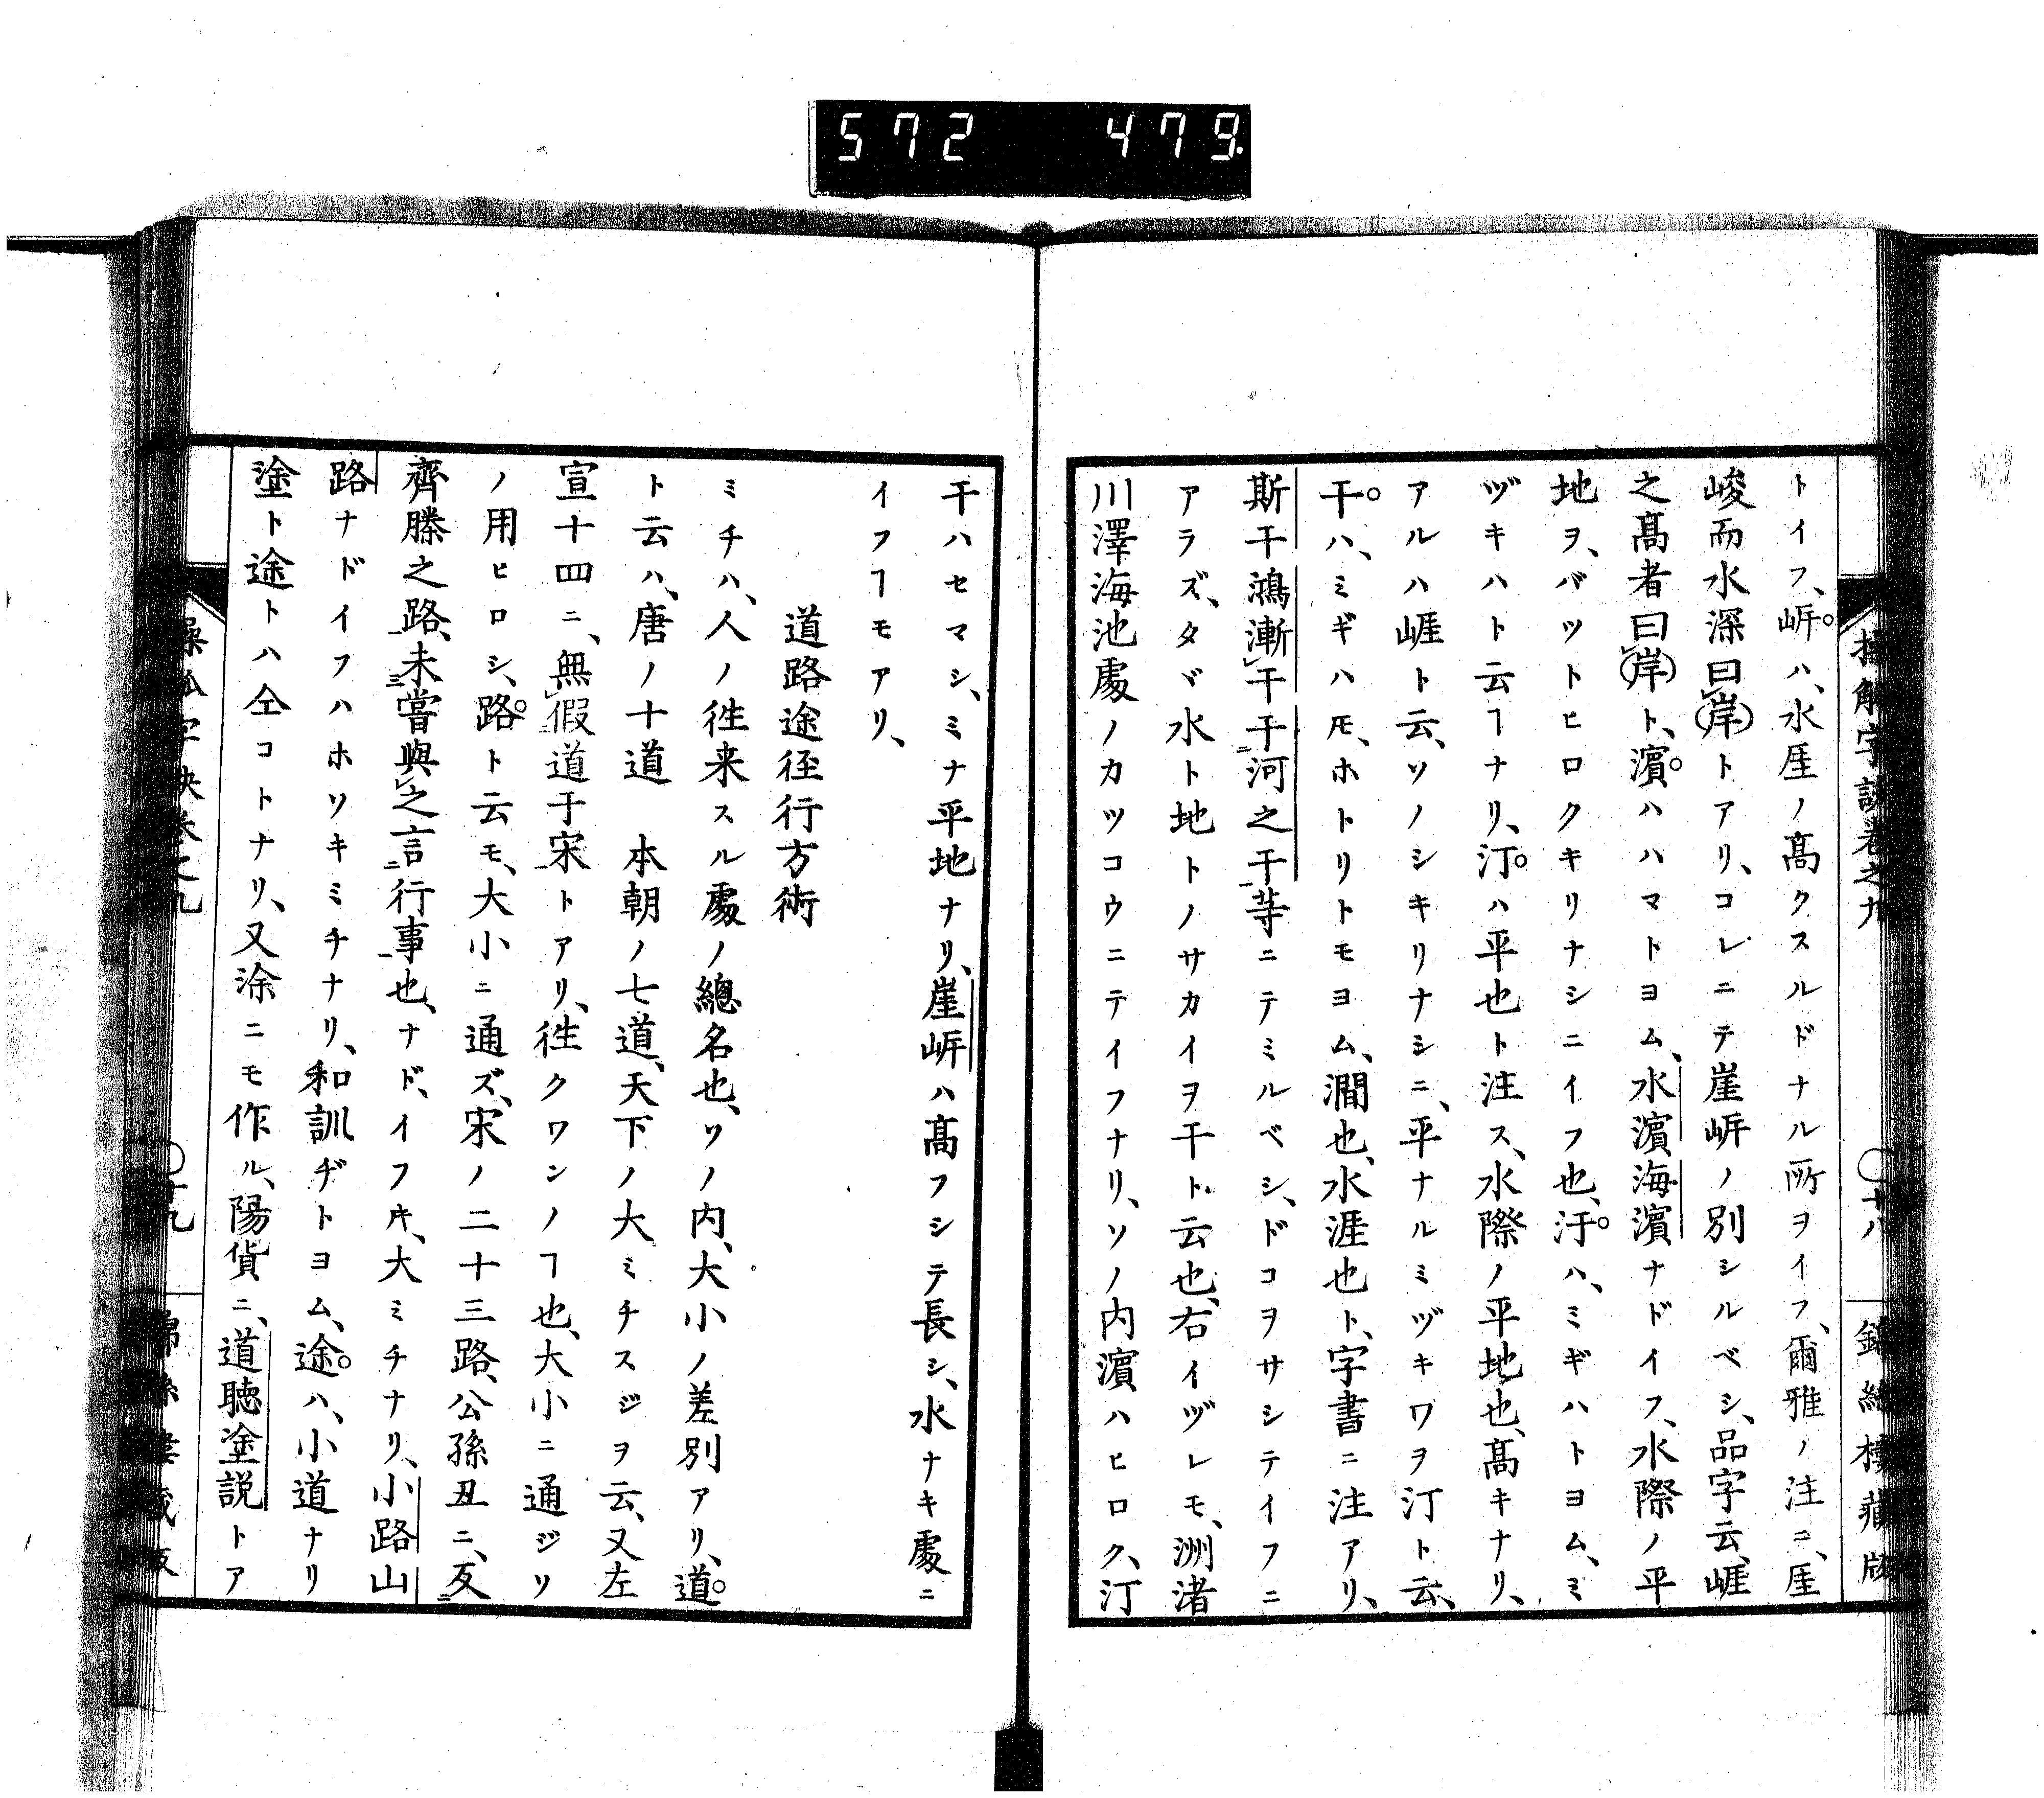 572 479.
トイフ、㟁。ハ、水厓ノ髙クスルドナル所ヲイフ、爾雅ノ注ニ、厓
峻而水深曰(岸)トアリ、コレニテ崖㟁ノ別シルベシ、品字云、崕
之髙者曰(岸)ト、濵。ハハマトヨム、水濵海濵ナドイフ、水際ノ平
地ヲ、バツトヒロクキリナシニイフ也、汙。ハ、ミギハトヨム、ミ
ヅキハト云ヿナリ、汀。ハ平也ト注ス、水際ノ平地也、髙キナリ、
アルハ崕ト云、ソノシキリナシニ、平ナルミヅキワヲ汀ト云、
干。ハ、ミギハ𪜈、ホトリトモヨム、澗也、水涯也ト、字書ニ注アリ、
斯干鴻漸干干河之干等ニテミルベシ、ドコヲサシテイフニ
アラズ、タヾ水ト地トノサカイヲ干ト云也、右イヅレモ、洲渚
川澤海池處ノカツコウニテイフナリ、ソノ内濵ハヒロク、汀
干ハセマシ、ミナ平地ナリ、崖㟁ハ髙フシテ長シ、水ナキ處ニ
イフヿモアリ、
道路途徑行方術
ミチハ、人ノ徃来スル處ノ總名也、ソノ内、大小ノ差別アリ、道。
ト云ハ、唐ノ十道 本朝ノ七道、天下ノ大ミチスジヲ云、又左
宣十四ニ、無假道于宋トアリ、徃クワンノヿ也、大小ニ通ジソ
ノ用ヒロシ、路。ト云モ、大小ニ通ズ、宋ノ二十三路、公孫丑ニ、反
齊滕之路、未嘗與之言行事也、ナド、イフ𪜈、大ミチナリ、小路山
路ナドイフハホソキミチナリ、和訓ヂトヨム、途。ハ、小道ナリ
塗ト途トハ仝コトナリ、又涂ニモ作ル、陽貨ニ、道聴塗説トア
字訣卷之九